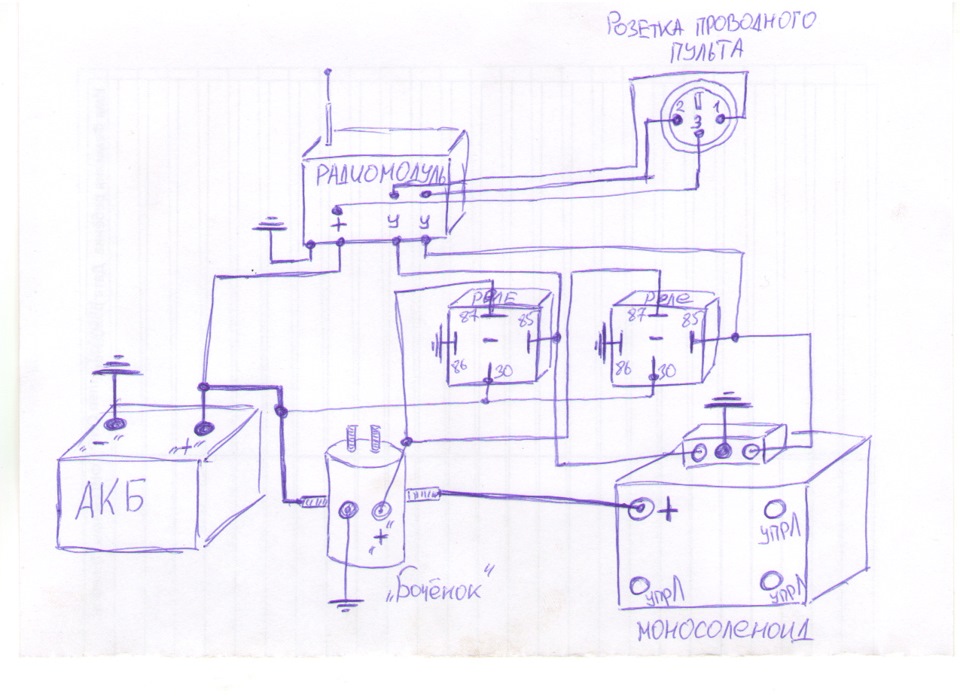 РОЗЕТКА ПРОВОДНОГО
ПУЛЬТА
2 1
3
РАДИОМОДУЛЬ
+ У У
РЕЛЕ
87 85
86 30
РЕЛЕ
87 85
86 30
„-“ „+“
АКБ
„+“
„Бочёнок“
+
УПРЛ
УПРЛ
УПРЛ
МОНОСОЛЕНОИД